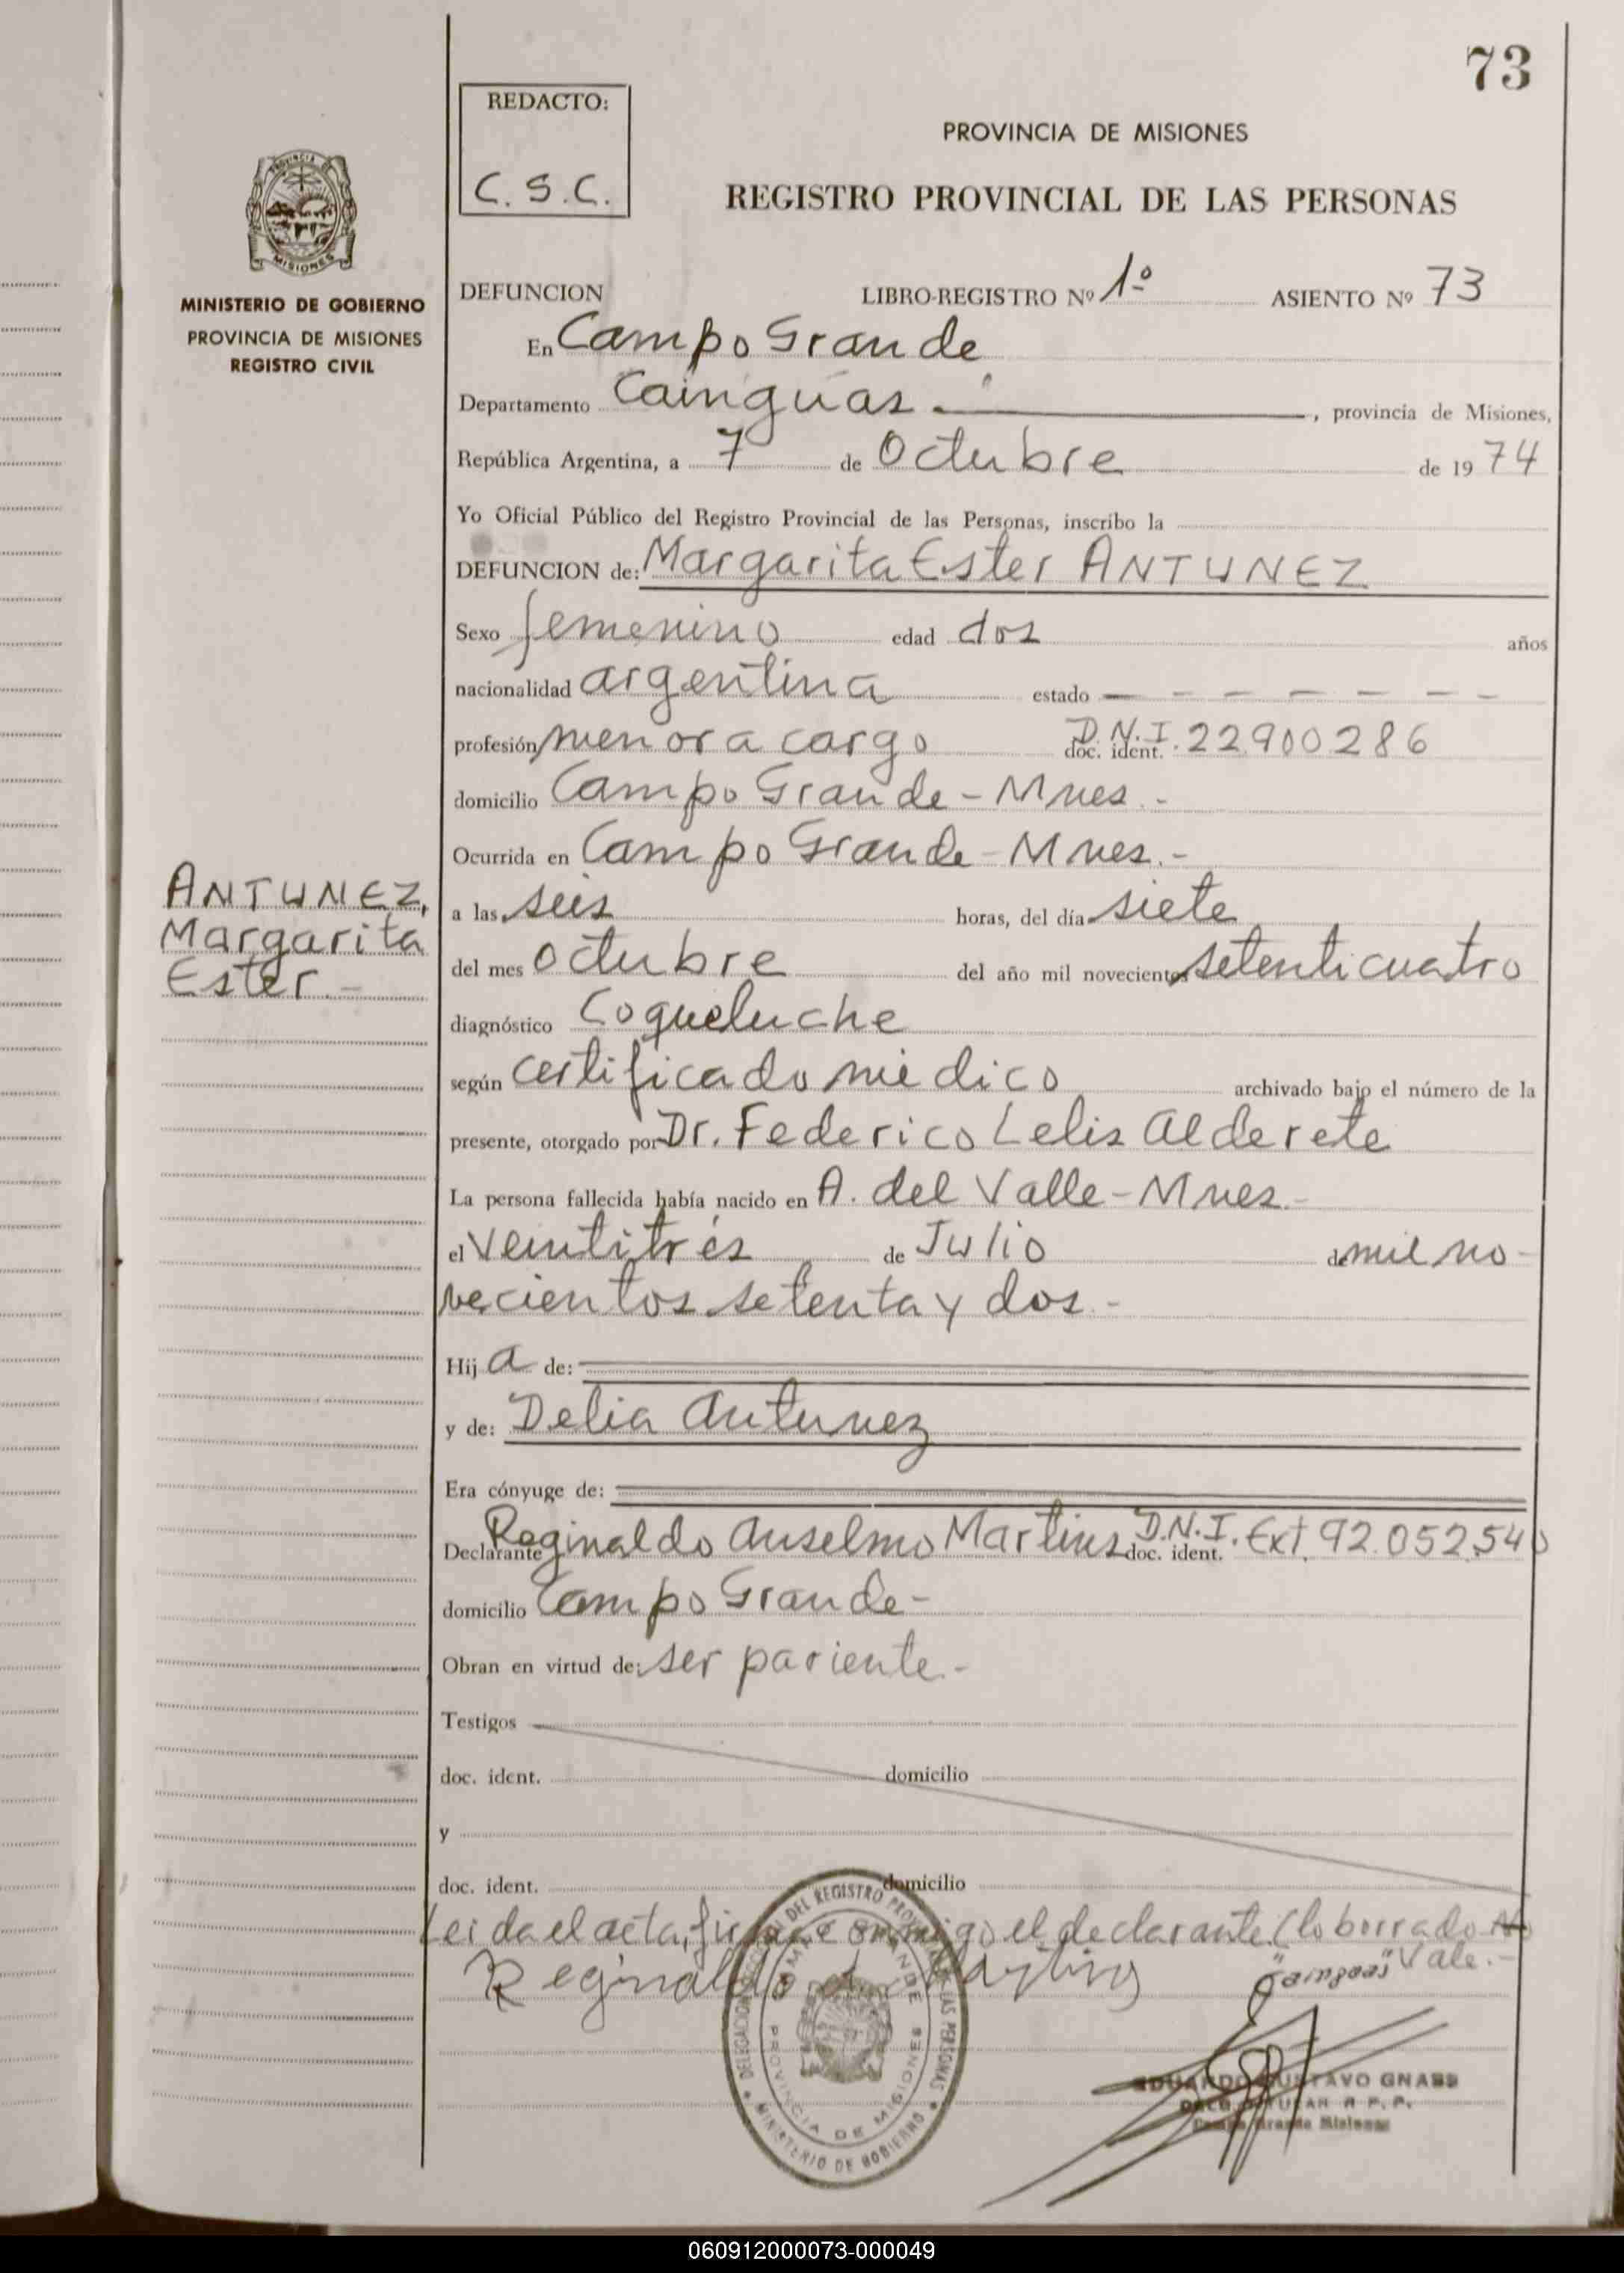 73
REDACTO:
C. S. C.
PROVINCIA DE MISIONES
REGISTRO PROVINCIAL DE LAS PERSONAS
MISIONES
MINISTERIO DE GOBIERNO
PROVINCIA DE MISIONES
REGISTRO CIVIL
DEFUNCION LIBRO-REGISTRO Nº 1º ASIENTO Nº 73
En Campo Grande
Departamento Cainguas.—, provincia de Misiones,
República Argentina, a 7 de Octubre de 19 74
Yo Oficial Público del Registro Provincial de las Personas, inscribo la
DEFUNCION de: Margarita Ester ANTUNEZ
Sexo femenino edad dos años
nacionalidad argentina estado — — — — — — —
profesión menor a cargo D.N.I. doc. ident. 22.900.286
domicilio Campo Grande - Mnes.-
Ocurrida en Campo Grande - Mnes.-
ANTUNEZ,
Margarita
Ester.-
a las seis horas, del día siete
del mes Octubre del año mil novecientos setenticuatro
diagnóstico Coqueluche
según certificado médico archivado bajo el número de la
presente, otorgado por Dr. Federico Lelis Alderete
La persona fallecida había nacido en A. del Valle - Mnes.-
el veintitrés de Julio de mil no-
vecientos setenta y dos.-
Hij a de:
y de: Delia Antunez
Era cónyuge de:
Declarante Reginaldo Anselmo Martins D.N.I. doc. ident. Ext. 92.052.540
domicilio Campo Grande-
Obran en virtud de: ser pariente.-
Testigos
doc. ident. domicilio
y
doc. ident. domicilio
Leida el acta, firma conmigo el declarante. (lo borrado
"Cainguas" Vale.-
Reginaldo A. Martins
DELEGACION SECCIONAL DEL REGISTRO PROVINCIAL DE LAS PERSONAS
CAMPO GRANDE
PROVINCIA DE MISIONES
MINISTERIO DE GOBIERNO
EDUARDO GUSTAVO GNASS
DELEG. TITULAR R. P. P.
Campo Grande Misiones
060912000073-000049